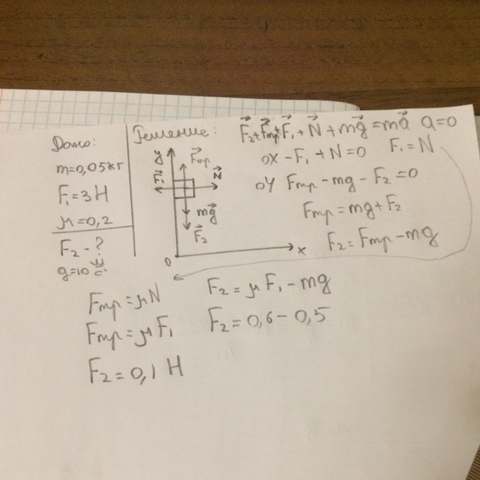 Дано:
m=0,05кг
F₁=3H
μ=0,2
F₂-?
g=10 м/с²
Решение:
F⃗₂+F⃗тр+F⃗₁+N⃗+mg⃗=ma⃗ a=0
OX -F₁+N=0 F₁=N
OY Fтр-mg-F₂=0
Fтр=mg+F₂
F₂=Fтр-mg
y
F⃗тр
F⃗₁
N⃗
mg⃗
F⃗₂
0
x
Fтр=μN
Fтр=μF₁
F₂=0,1 H
F₂=μF₁-mg
F₂=0,6-0,5